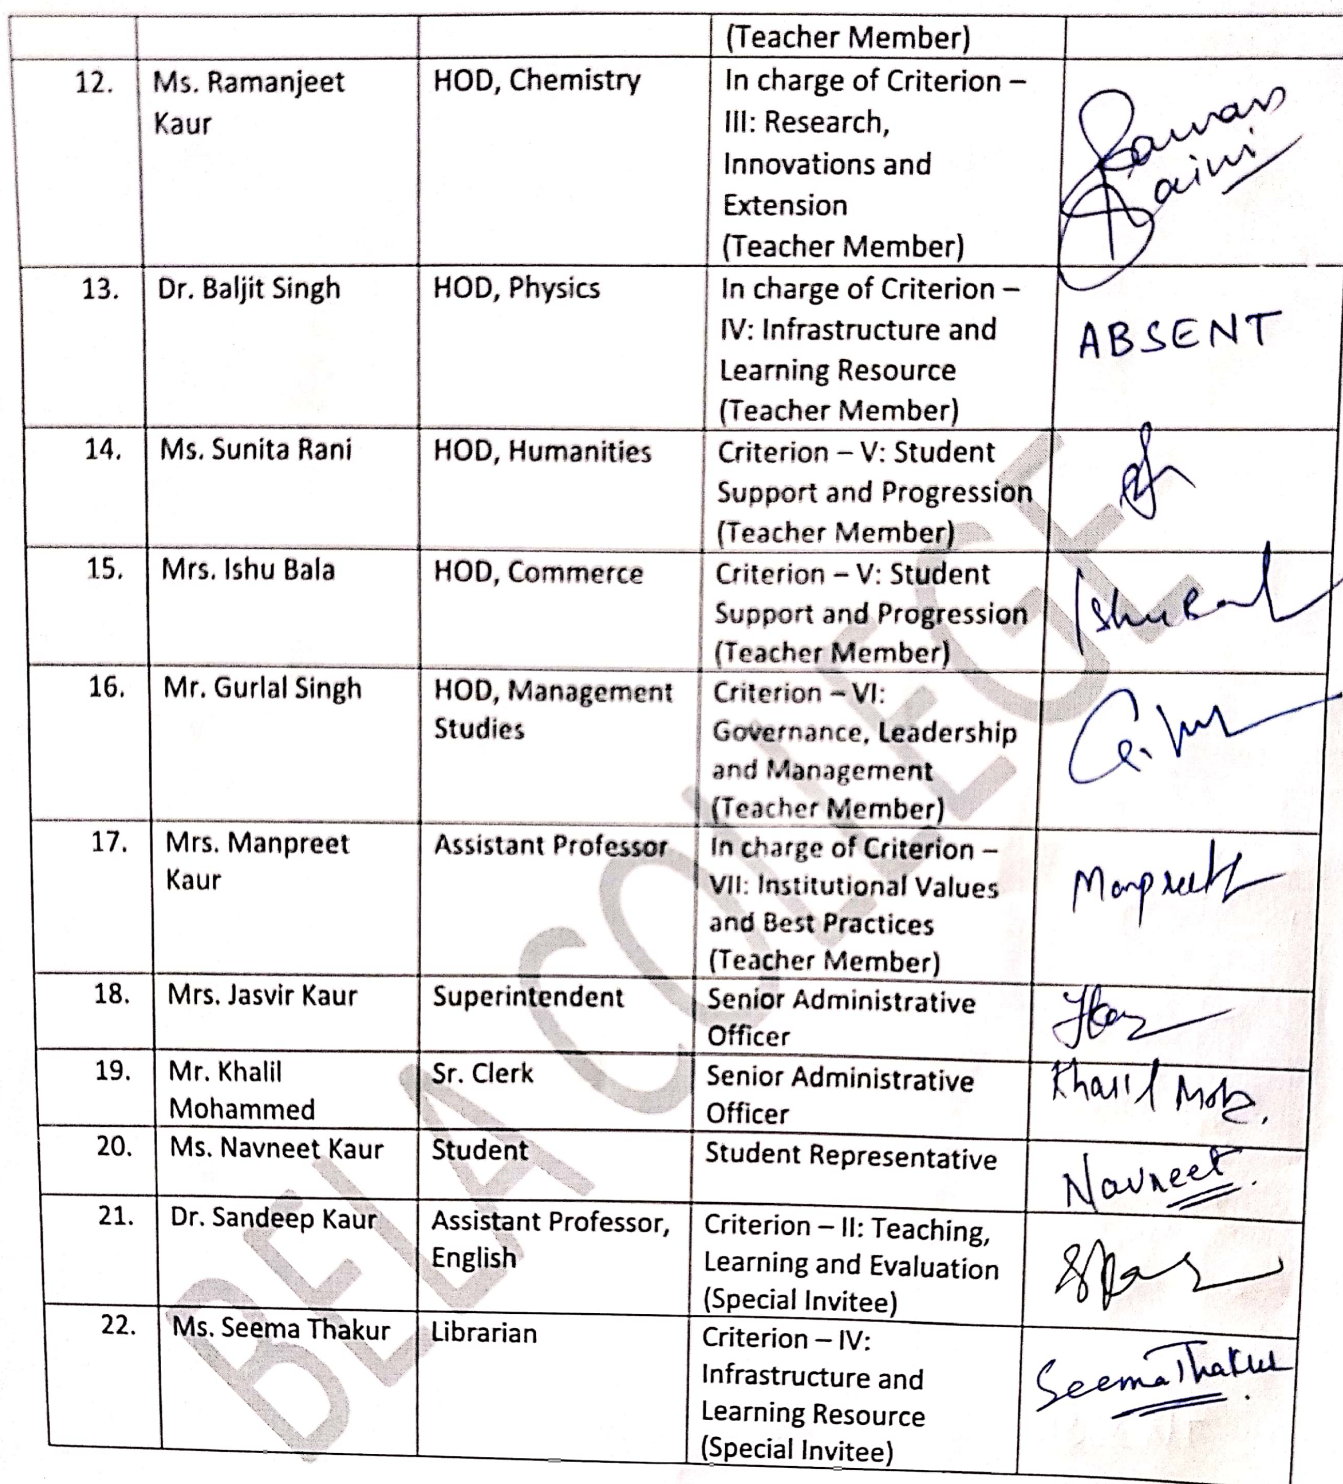 (Teacher Member)
12. Ms. Ramanjeet HOD, Chemistry In charge of Criterion –
Kaur III: Research,
Innovations and
Extension
(Teacher Member)
Raman
Saini
13. Dr. Baljit Singh HOD, Physics In charge of Criterion –
IV: Infrastructure and ABSENT
Learning Resource
(Teacher Member)
14. Ms. Sunita Rani HOD, Humanities Criterion – V: Student
Support and Progression
(Teacher Member)
15. Mrs. Ishu Bala HOD, Commerce Criterion – V: Student
Support and Progression
(Teacher Member)
16. Mr. Gurlal Singh HOD, Management Criterion – VI:
Studies Governance, Leadership
and Management
(Teacher Member)
17. Mrs. Manpreet Assistant Professor In charge of Criterion –
Kaur VII: Institutional Values Manpreet
and Best Practices
(Teacher Member)
18. Mrs. Jasvir Kaur Superintendent Senior Administrative
Officer
19. Mr. Khalil Sr. Clerk Senior Administrative Khalil Moh.
Mohammed Officer
20. Ms. Navneet Kaur Student Student Representative Navneet.
21. Dr. Sandeep Kaur Assistant Professor, Criterion – II: Teaching,
English Learning and Evaluation
(Special Invitee)
22. Ms. Seema Thakur Librarian Criterion – IV:
Infrastructure and Seema Thakur
Learning Resource
(Special Invitee)
BELA COLLEGE